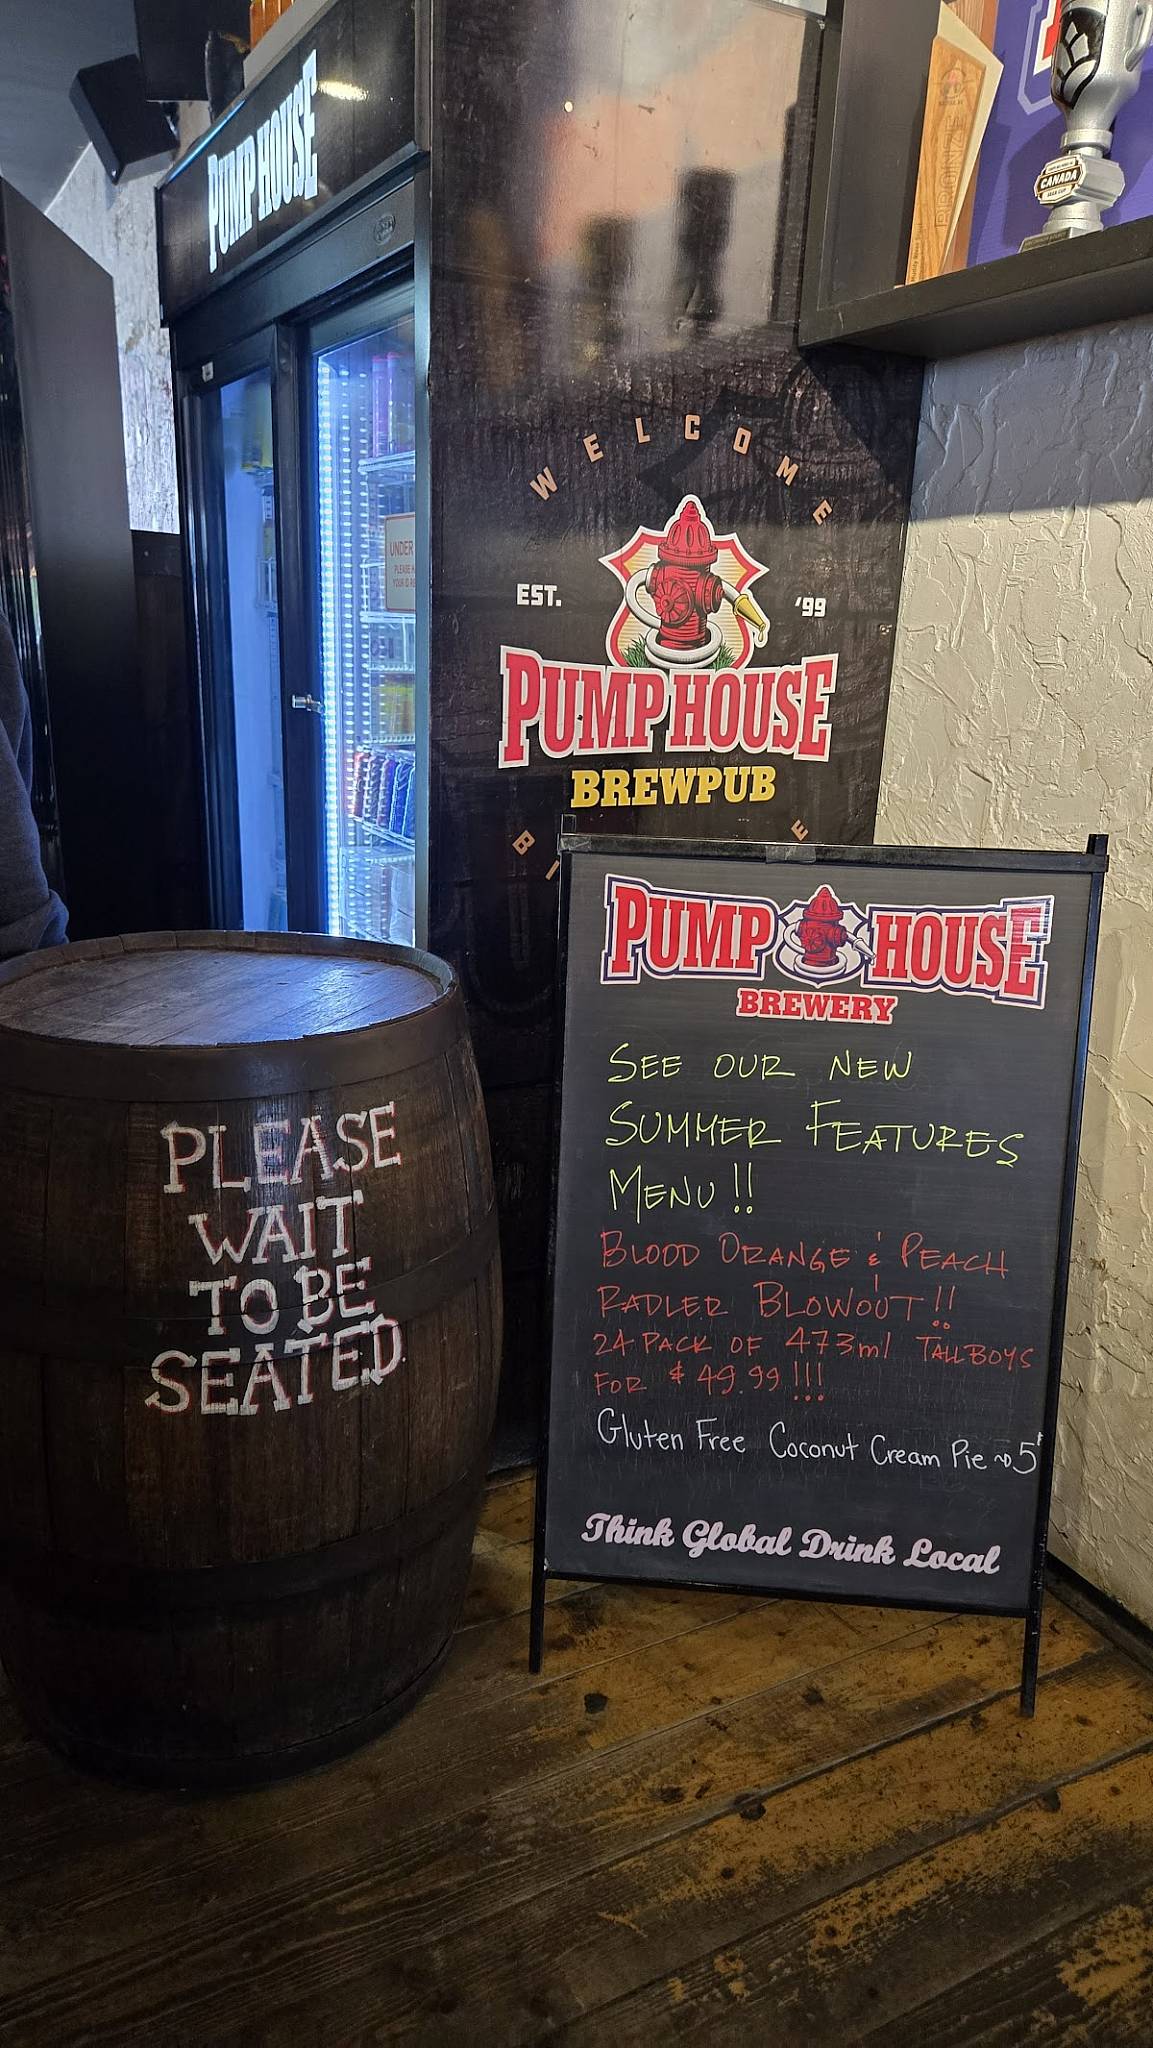 PUMP HOUSE
BRONZE
CANADA
WELCOME
UNDER
EST. '99
PUMP HOUSE
BREWPUB
PUMP HOUSE
BREWERY
SEE OUR NEW
SUMMER FEATURES
MENU!!
BLOOD ORANGE & PEACH
RADLER BLOWOUT!!
24 PACK OF 473ml TALLBOYS
FOR $49.99!!!
Gluten Free Coconut Cream Pie → 5$
Think Global Drink Local
PLEASE
WAIT
TO BE
SEATED